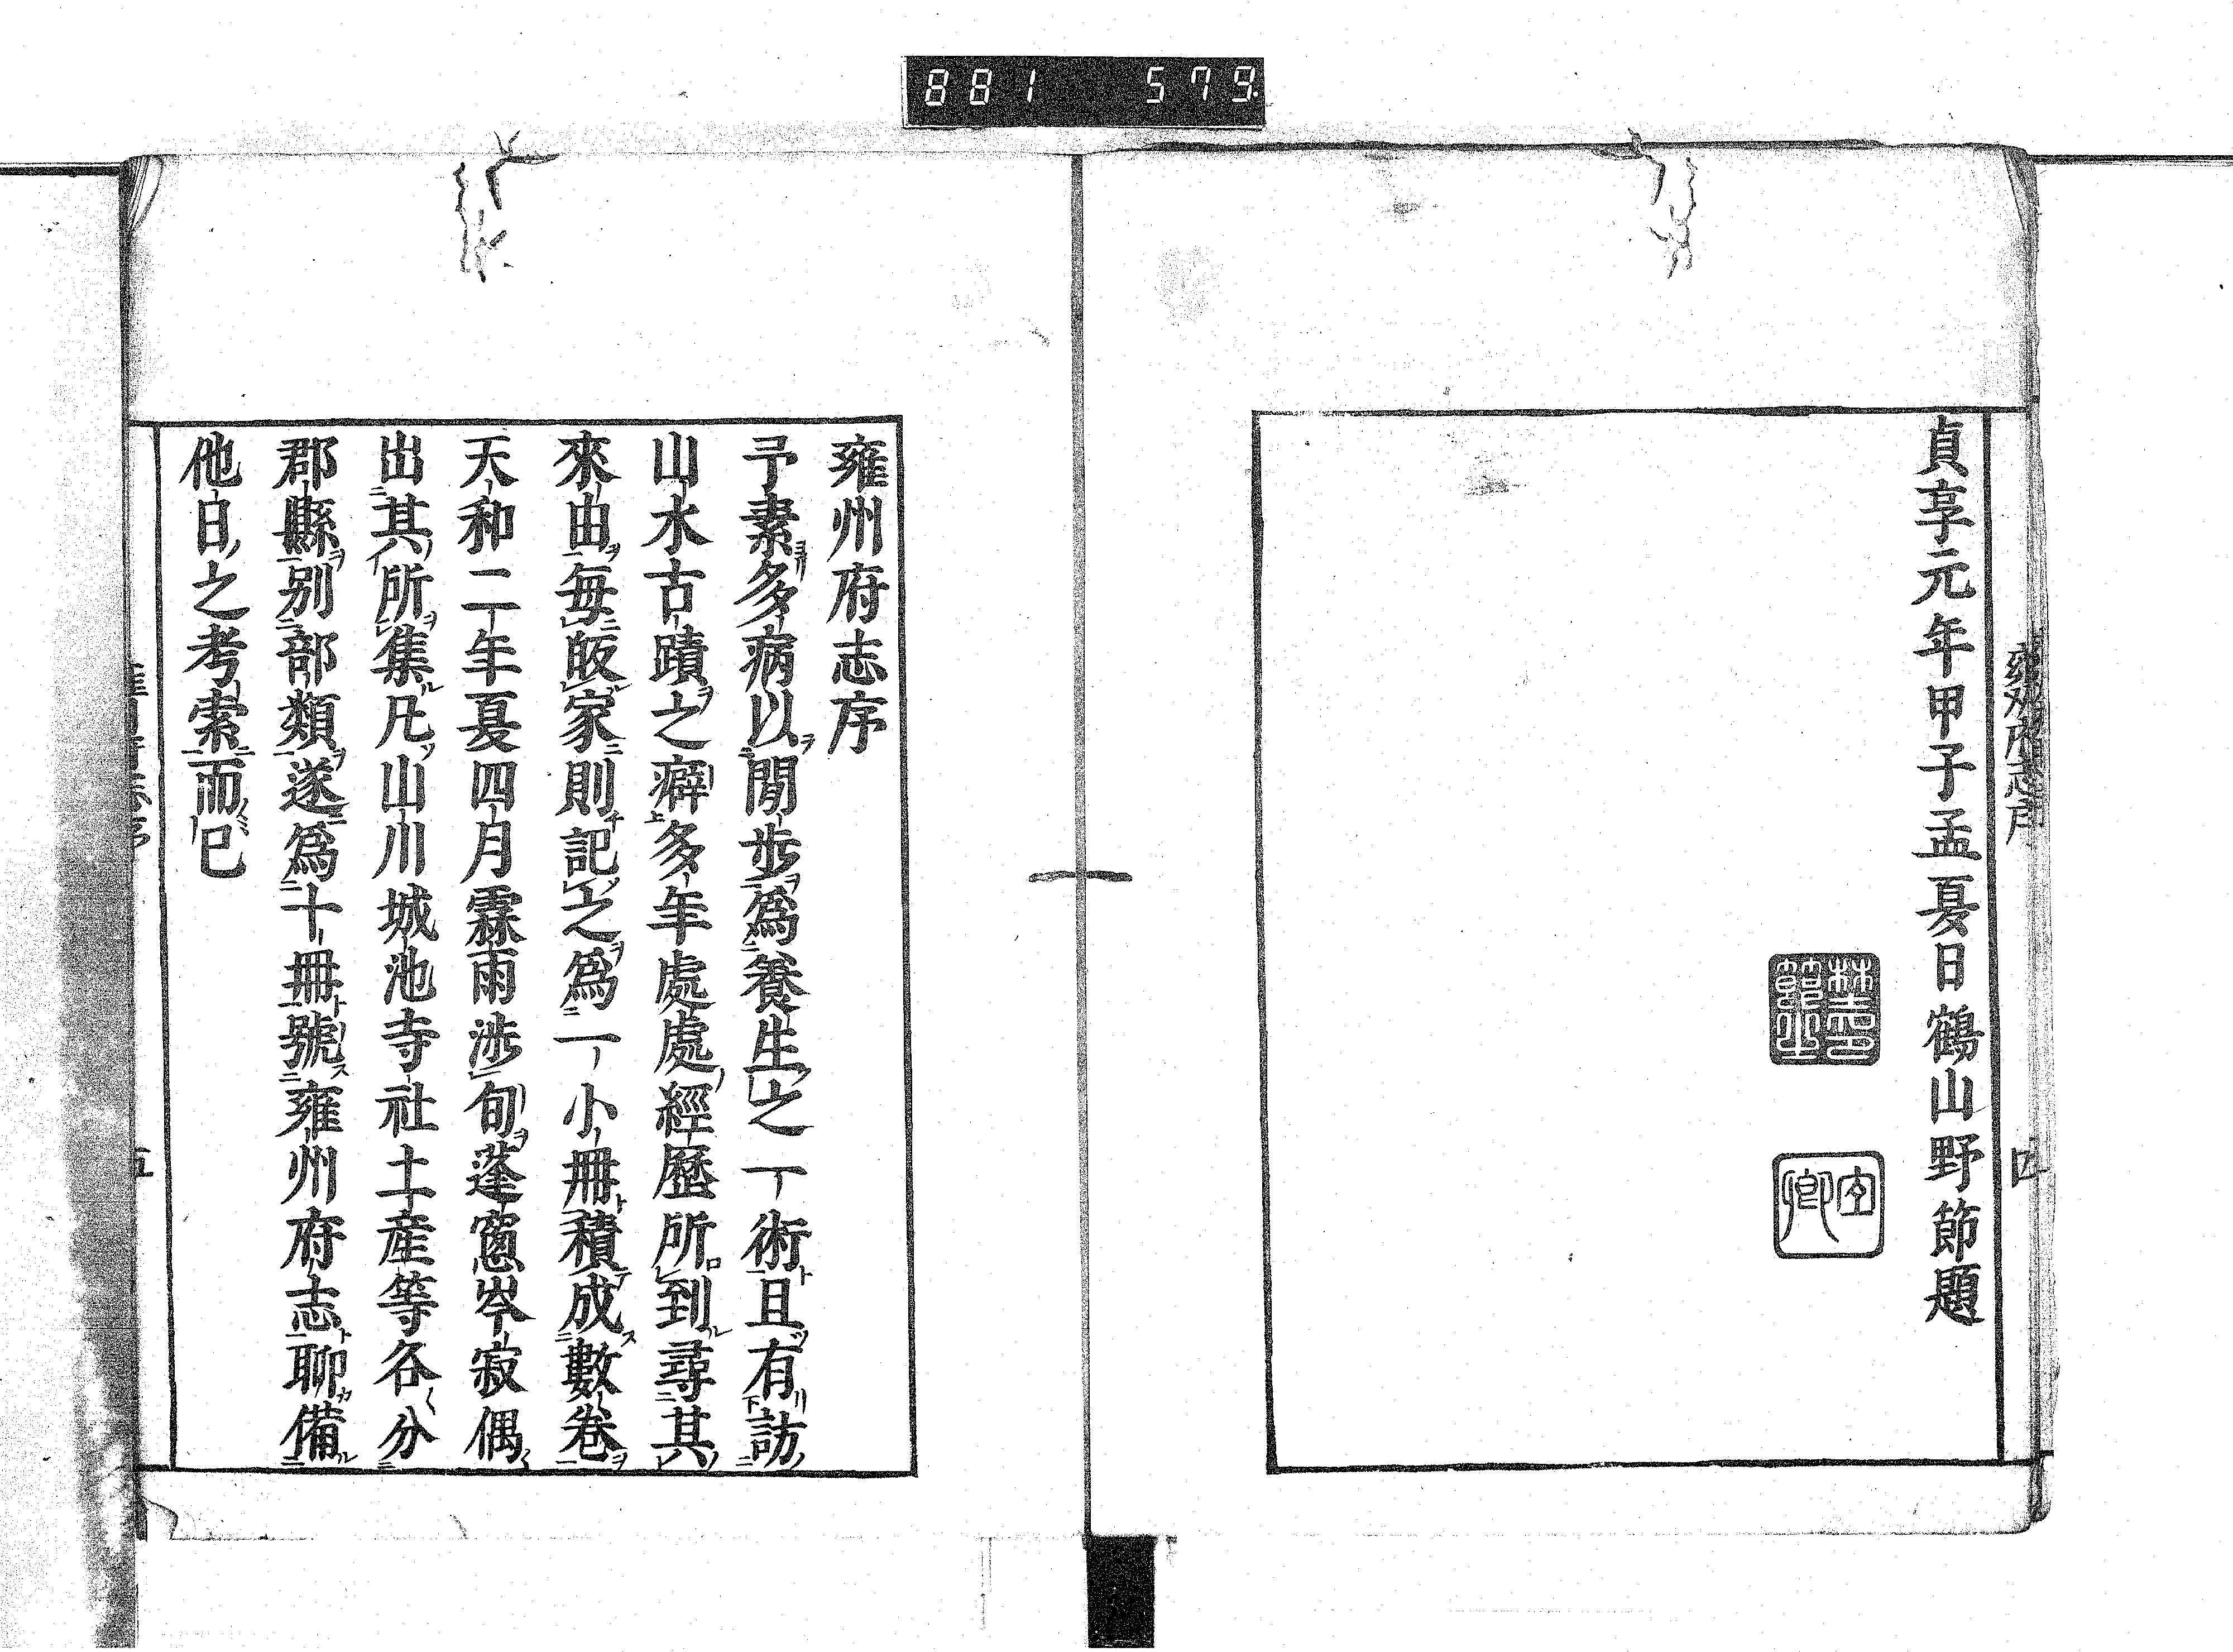 881 579
雍州府志序
四
貞享元年甲子孟夏日鶴山野節題
宜卿
雍州府志序
予素多病以閒歩爲養生之一術且有訪
山水古蹟之癖多年處處經歷所到尋其
來由每皈家則記之爲一小冊積成數卷
天和二年夏四月霖雨渉旬蓬窻岑寂偶
出其所集凡山川城池寺社土産等各分
郡縣别部類遂爲十冊號雍州府志聊備
他日之考索而已
五